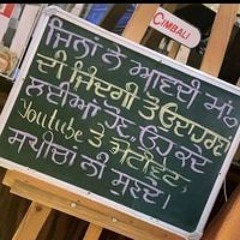 CIMBALI
ਜਿਨਾਂ ਨੇ ਆਪਣੀ ਮਾਂ
ਦੀ ਜ਼ਿੰਦਗੀ ਤੋਂ ਉਦਾਹਰਣ
ਲਈਆਂ ਹੋਣ, ਉਹ ਕਦੇ
Youtube ਤੇ ਮੋਟੀਵੇਟ
ਸਪੀਚਾਂ ਨੀ ਸੁਣਦੇ।